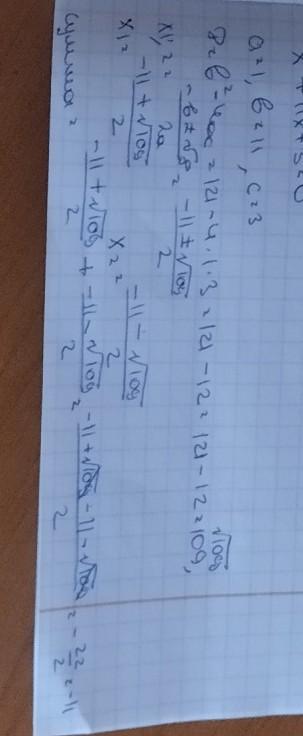 x² + 11x + 3 = 0
a = 1, b = 11, c = 3
D = b² - 4ac = 121 - 4·1·3 = 121 - 12 = 121 - 12 = 109, √109
x1,2 = (-b ± √D)/2a = (-11 ± √109)/2
x1 = (-11 + √109)/2 x2 = (-11 - √109)/2
Сумма = (-11 + √109)/2 + (-11 - √109)/2 = (-11 + √109 - 11 - √109)/2 = -22/2 = -11